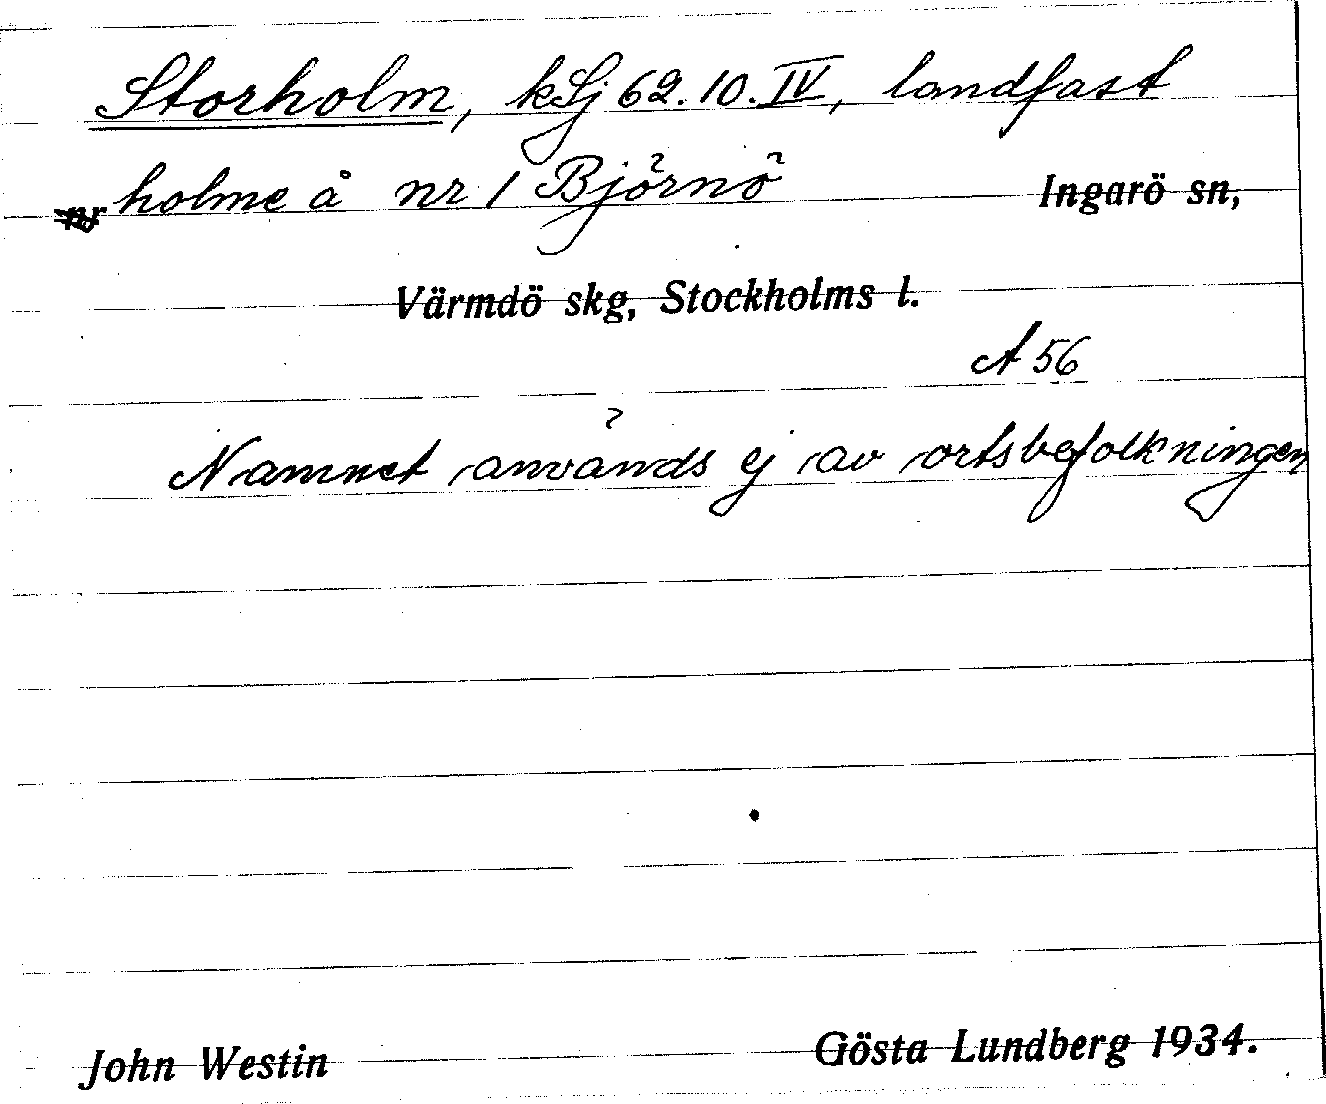 Storholm, kSj 62.10.IV, landfast
nr holme å nr 1 Björnö Ingarö sn,
Värmdö skg, Stockholms l.
A 56
Namnet används ej av ortsbefolkningen
John Westin Gösta Lundberg 1934.